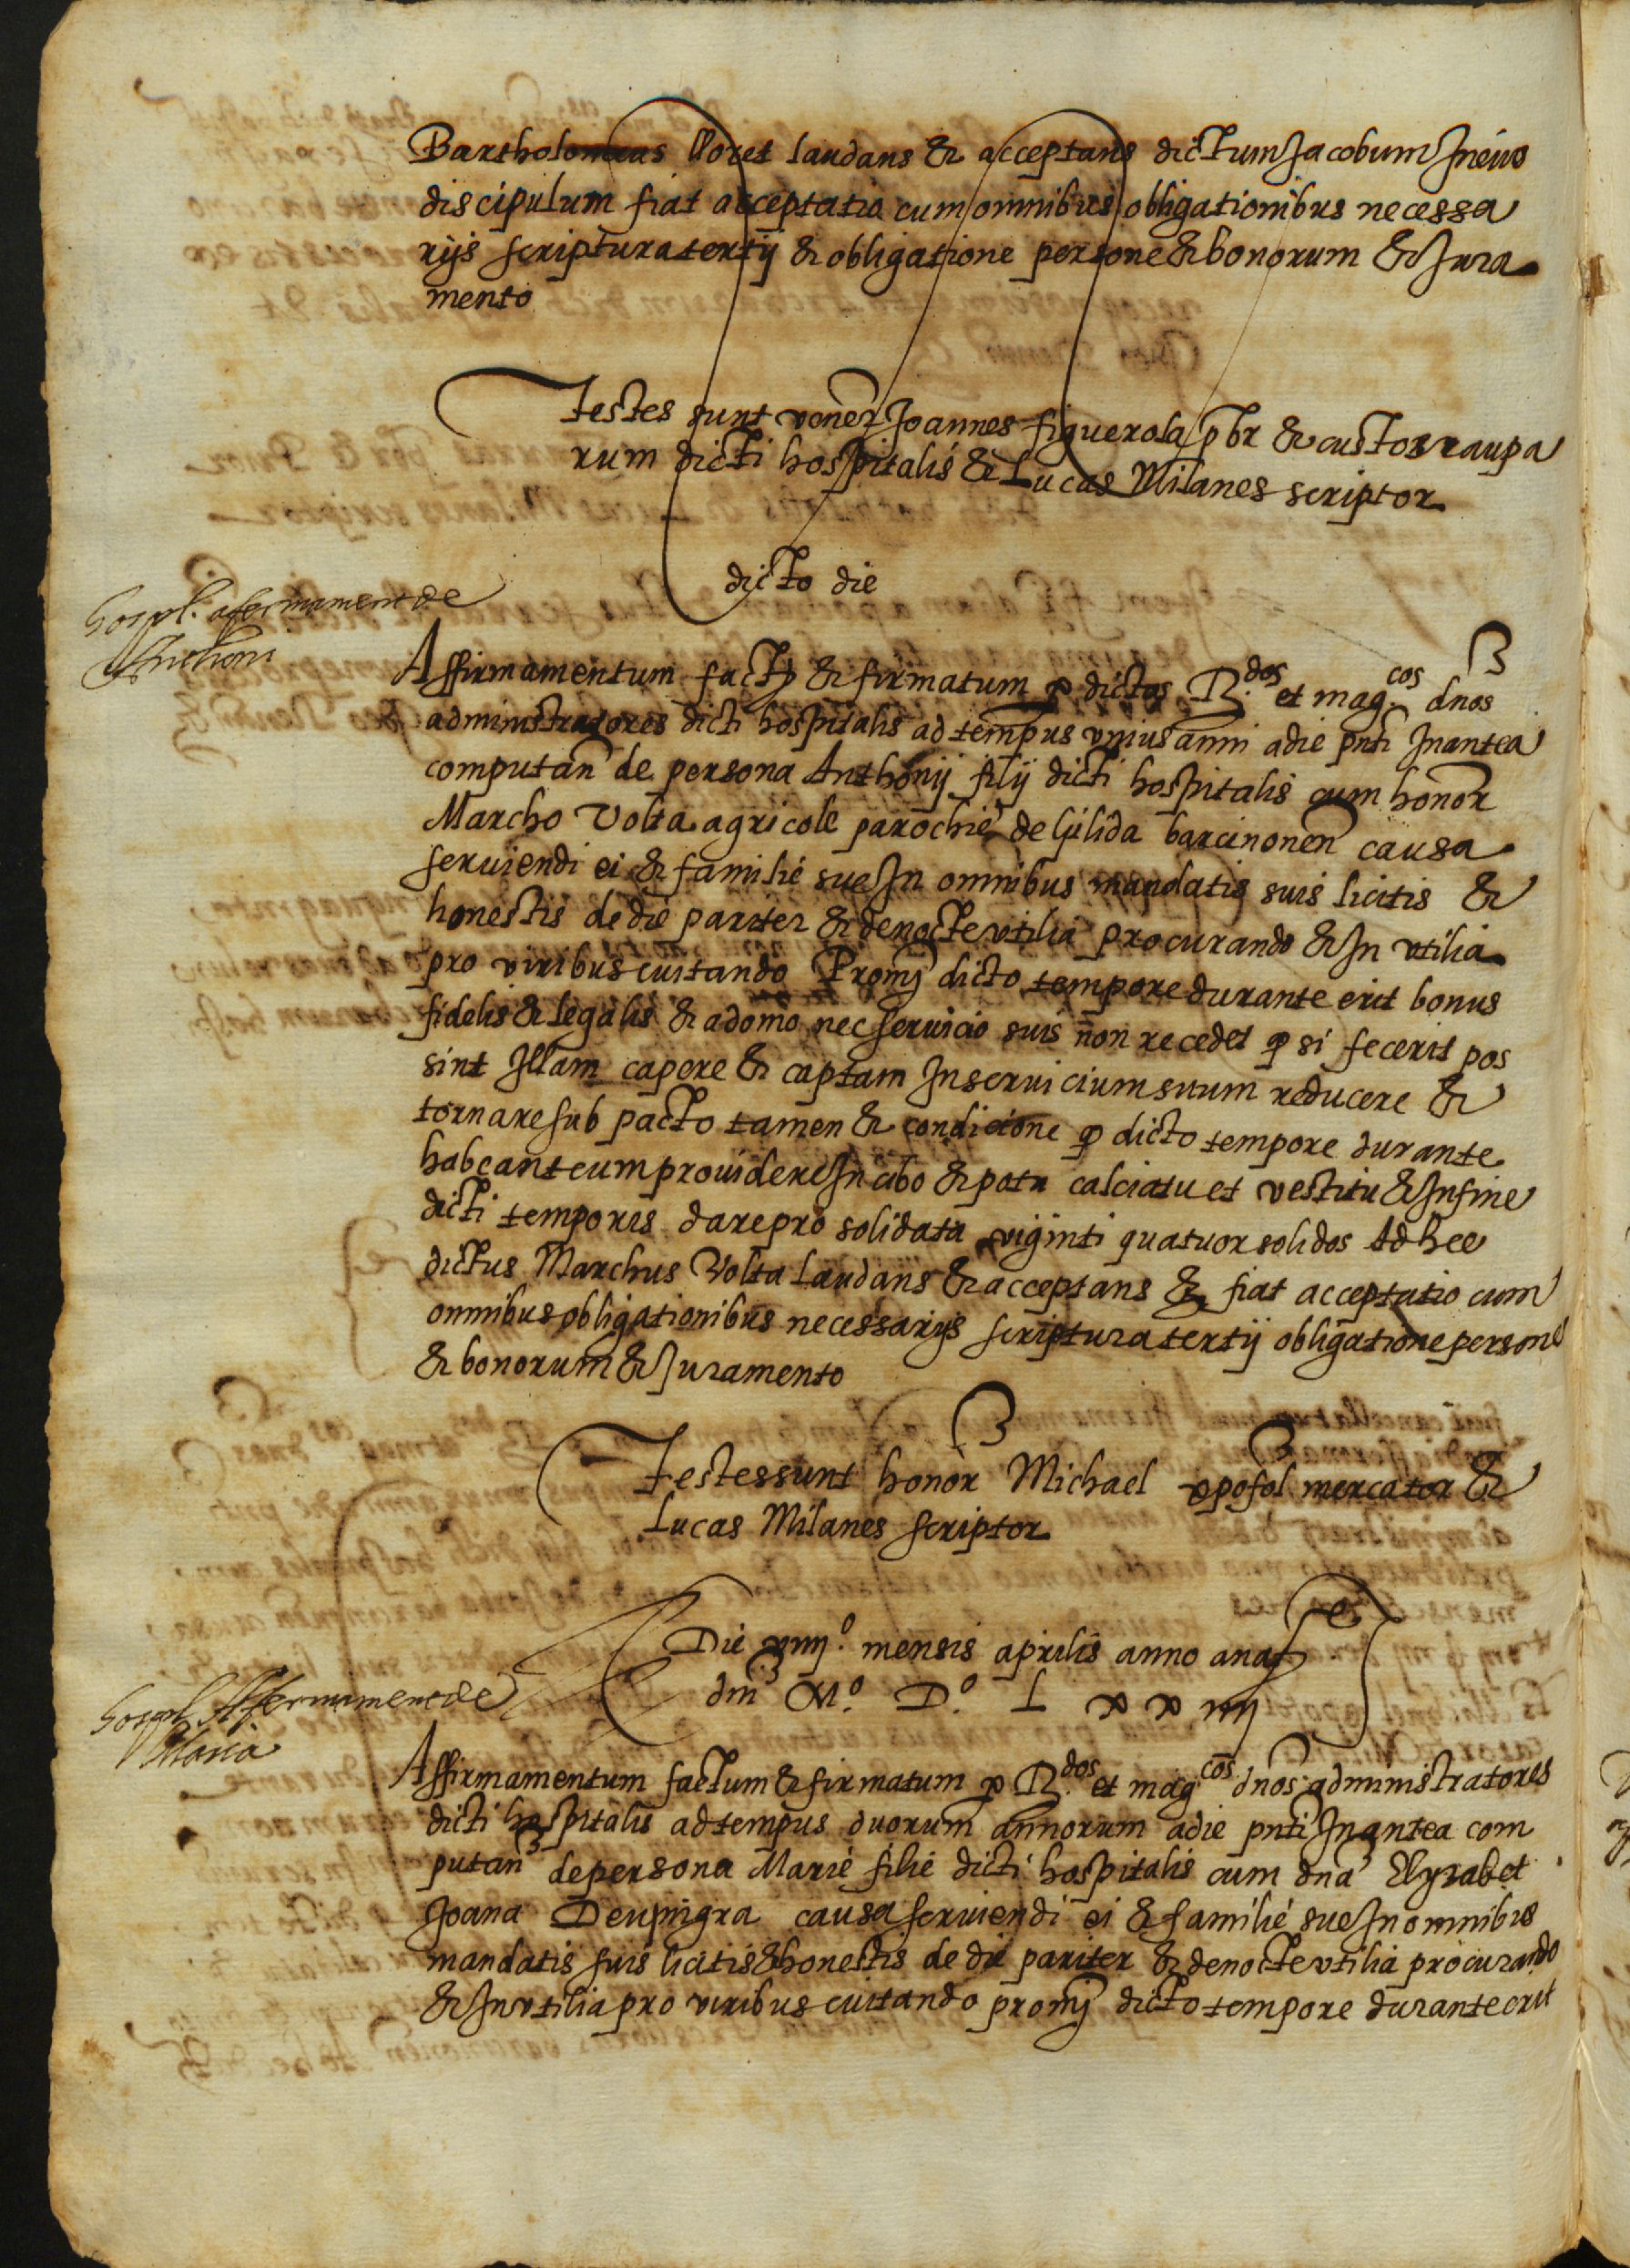 Bartholomeus lloret laudans & acceptans dictum Jacobum In eius
discipulum fiat acceptatio cum omnibus obligationibus necessa
rijs scriptura tertij & obligatione persone & bonorum & Jura
mento
Testes sunt vener Joannes figuerola pbr & custos raupa
rum dicti hospitalis & Lucas Milanes scriptor
dicto die
hospl. afermament de
Anthoni
Affirmamentum factu & firmatum p dictos R.dos et mag.cos dnos
administratores dicti hospitalis ad tempus vnius anni a die pnti Inantea
computan de persona Anthonij filij dicti hospitalis cum honor
Marcho Volta agricole parochie de lilida barcinonen causa
seruiendi ei & familie sue In omnibus mandatis suis licitis &
honestis de die pariter & de nocte vtilia procurando & In vtilia
pro viribus euitando Promj dicto tempore durante erit bonus
fidelis & legalis & a domo nec seruicio suis non recedet q si fecerit pos
sint Illam capere & captam In seruicium suum reducere &
tornare sub pacto tamen & condicione q dicto tempore durante
habeant eum prouidere In cibo & potu calciatu et vestitu & In fine
dicti temporis dare pro solidata viginti quatuor solidos Ad hec
dictus Marchus Volta laudans & acceptans & fiat acceptatio cum
omnibus obligationibus necessarijs scriptura tertij obligatione persone
& bonorum & Juramento
Testes sunt honor Michael xpofol mercator &
Lucas Milanes scriptor
Die xiiij.o mensis aprilis anno a nat
dni M.o D.o L x x iiij
hospl. Affermament de
Maria
Affirmamentum factum & firmatum p R.dos et mag.cos dnos administratores
dicti hospitalis ad tempus duorum annorum a die pnti Inantea com
putan de persona Marie filie dicti hospitalis cum dna Elyzabet
Joana Deupnigra causa seruiendi ei & familie sue In omnibus
mandatis suis licitis & honestis de die pariter & de nocte vtilia procurando
& In vtilia pro viribus euitando promj dicto tempore durante erit